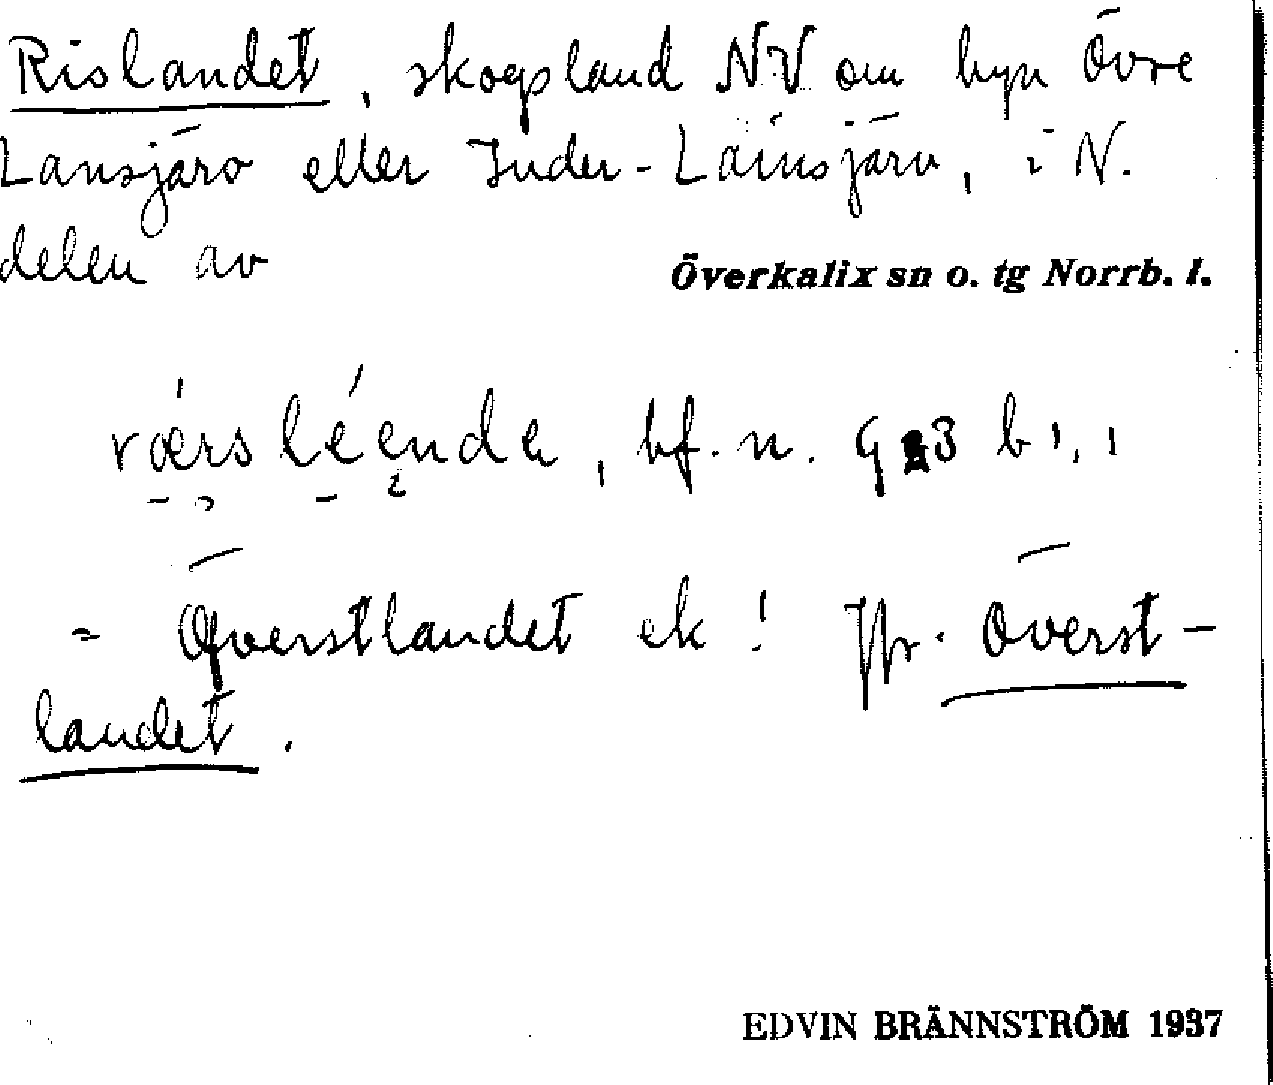 Rislandet, skogsland NV om byn Övre
Lansjärv eller Inder-Lainsjärv, i N.
delen av
Överkalix sn o. tg Norrb. l.
bf. n.
= Överstlandet ek! Jfr. Överst-
landet.
EDVIN BRÄNNSTRÖM 1937